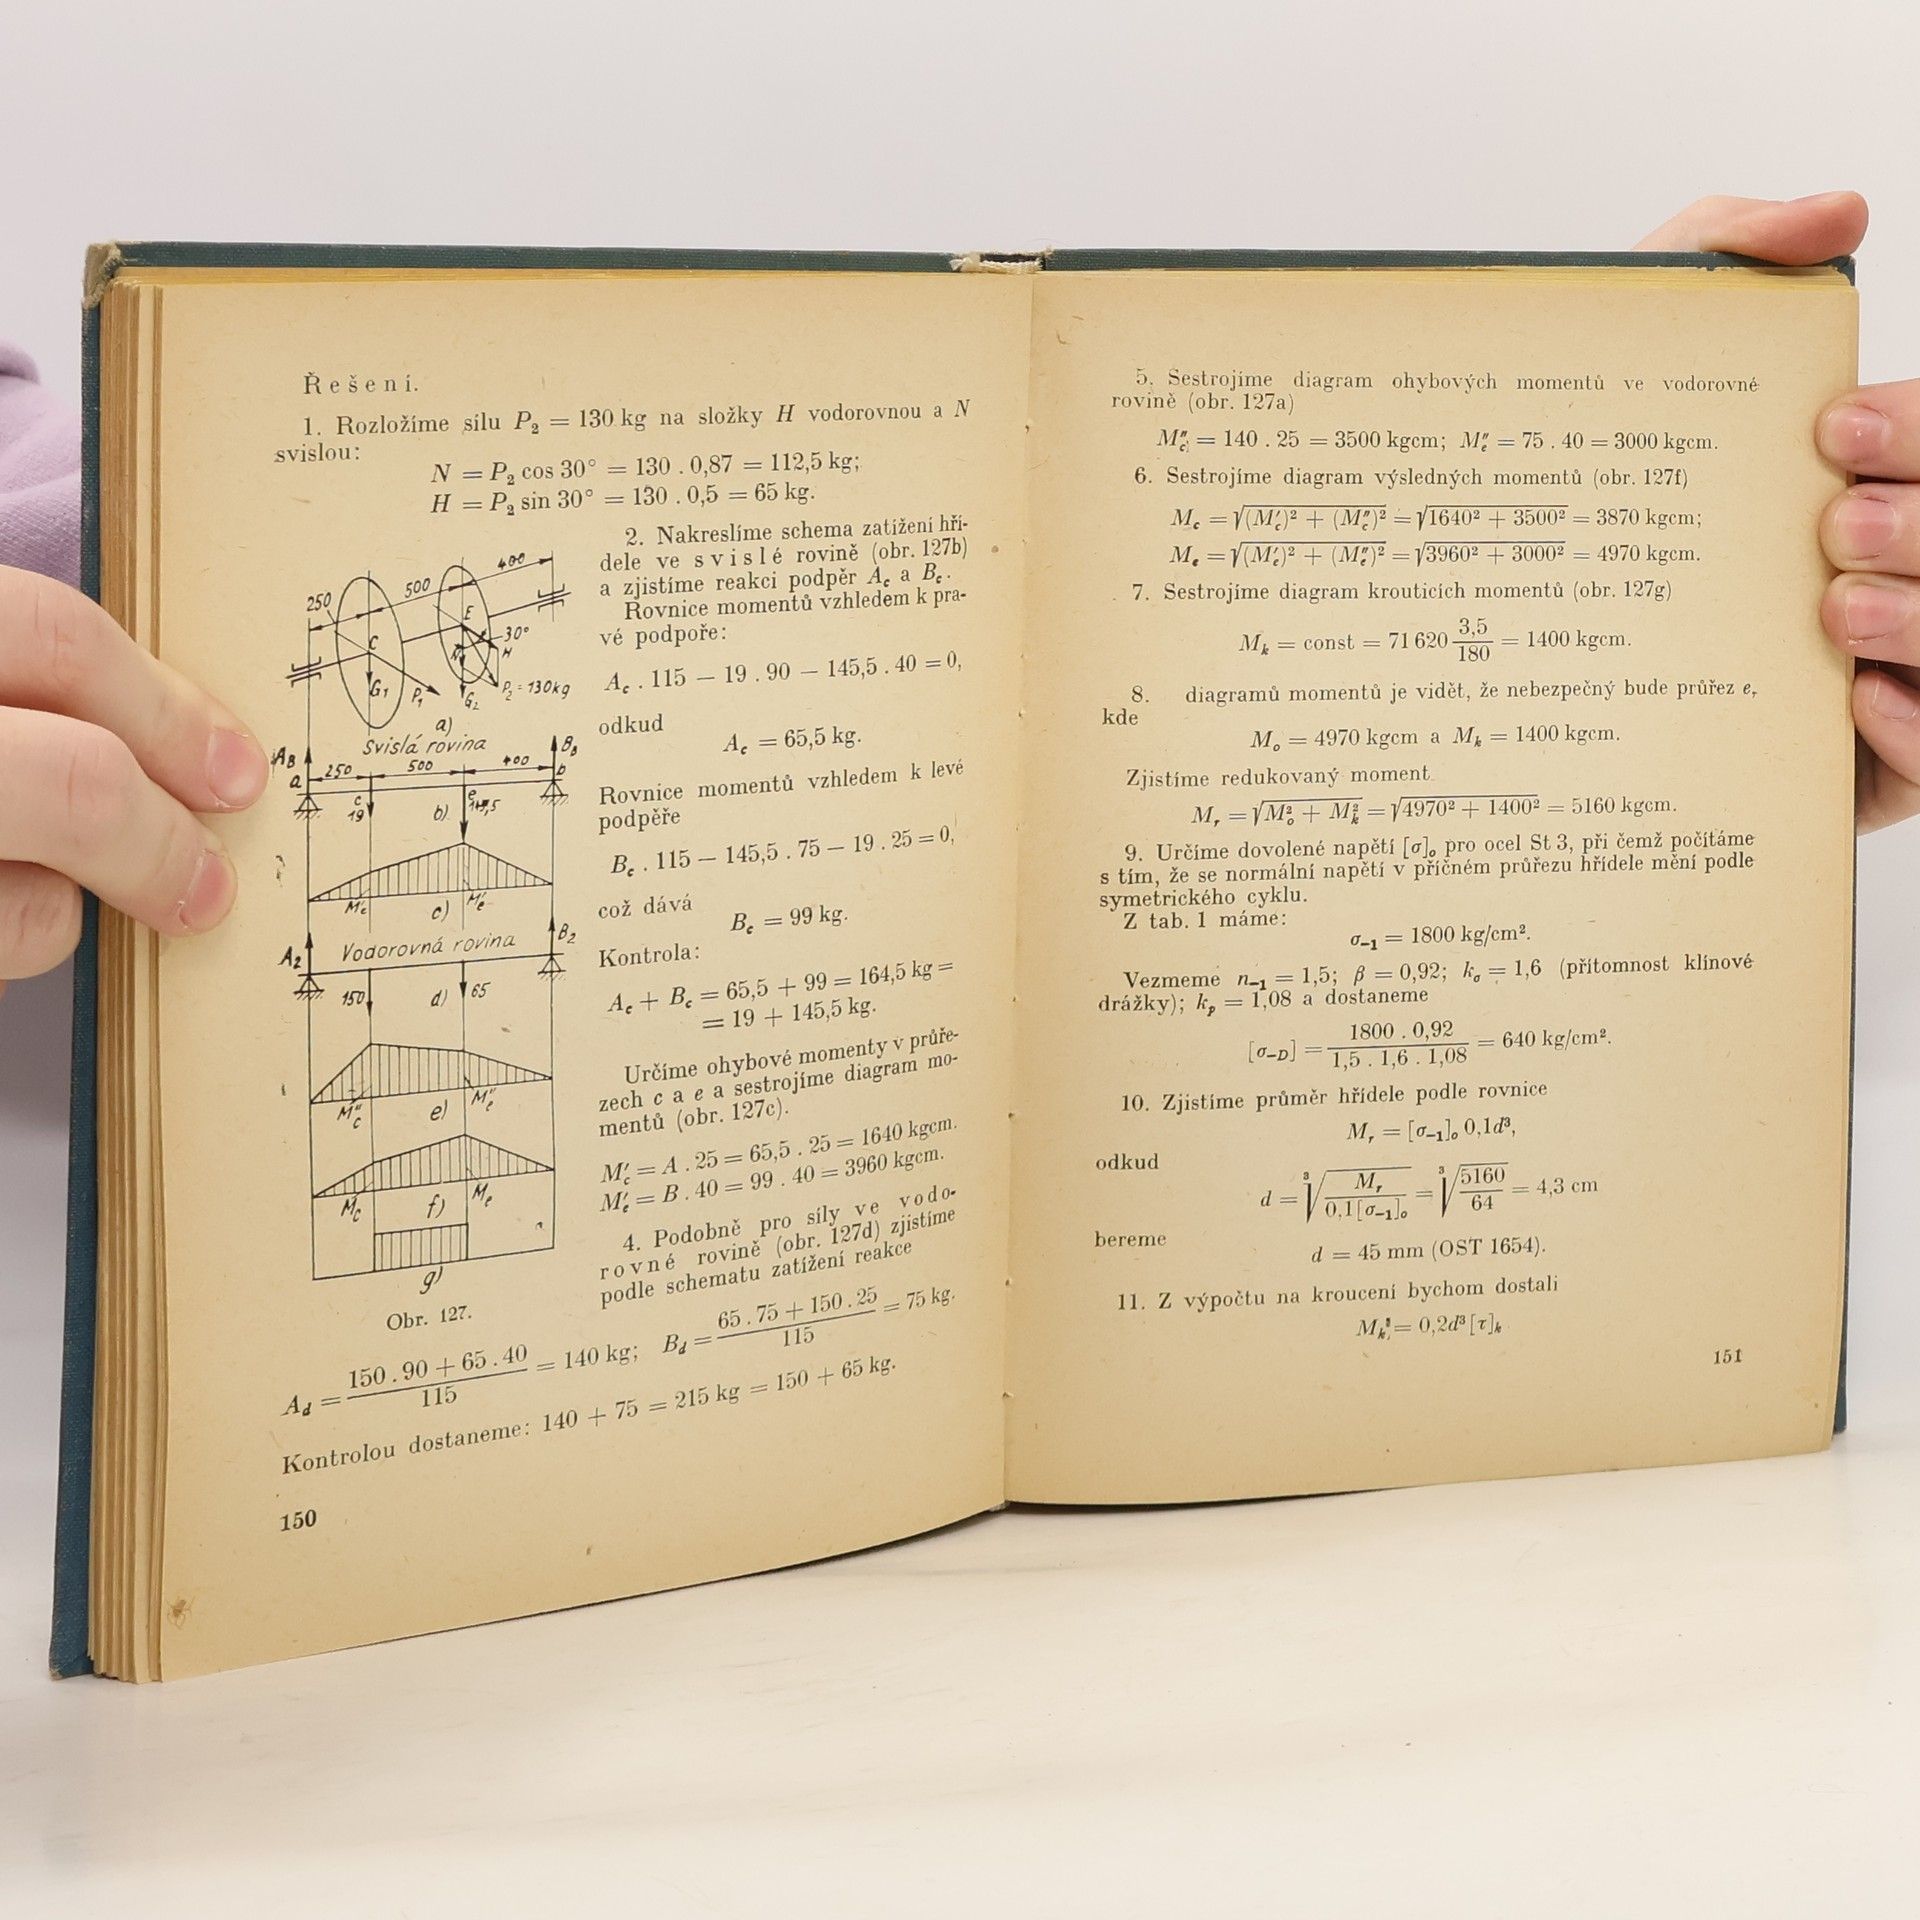 Řešení.
1. Rozložíme sílu P₂ = 130 kg na složky H vodorovnou a N
svislou:
N = P₂ cos 30° = 130 . 0,87 = 112,5 kg;
H = P₂ sin 30° = 130 . 0,5 = 65 kg.
2. Nakreslíme schema zatížení hří-
dele ve svislé rovině (obr. 127b)
a zjistíme reakci podpěr A_c a B_c.
Rovnice momentů vzhledem k pra-
vé podpoře:
A_c . 115 — 19 . 90 — 145,5 . 40 = 0,
odkud
A_c = 65,5 kg.
Rovnice momentů vzhledem k levé
podpěře
B_c . 115 — 145,5 . 75 — 19 . 25 = 0,
což dává
B_c = 99 kg.
Kontrola:
A_c + B_c = 65,5 + 99 = 164,5 kg =
= 19 + 145,5 kg.
Určíme ohybové momenty v průře-
zech c a e a sestrojíme diagram mo-
mentů (obr. 127c).
M′_c = A . 25 = 65,5 . 25 = 1640 kgcm.
M′_e = B . 40 = 99 . 40 = 3960 kgcm.
4. Podobně pro síly ve vodo-
rovné rovině (obr. 127d) zjistíme
podle schematu zatížení reakce
250 500 400
C E 30°
N H
G₁ P₁ G₂ P₂ = 130kg
a)
Svislá rovina
A_B B_B
a 250 500 400 b
c e
19 b)
M′_c c) M′_e
A₂ Vodorovná rovina B₂
150 d) 65
M″_c e) M″_e
M_c f) M_e
g)
Obr. 127.
A_d = (150 . 90 + 65 . 40) / 115 = 140 kg; B_d = (65 . 75 + 150 . 25) / 115 = 75 kg.
Kontrolou dostaneme: 140 + 75 = 215 kg = 150 + 65 kg.
150
5. Sestrojíme diagram ohybových momentů ve vodorovné
rovině (obr. 127a)
M″_c = 140 . 25 = 3500 kgcm; M″_e = 75 . 40 = 3000 kgcm.
6. Sestrojíme diagram výsledných momentů (obr. 127f)
M_c = √((M′_c)² + (M″_c)²) = √(1640² + 3500²) = 3870 kgcm;
M_e = √((M′_e)² + (M″_e)²) = √(3960² + 3000²) = 4970 kgcm.
7. Sestrojíme diagram krouticích momentů (obr. 127g)
M_k = const = 71 620 3,5/180 = 1400 kgcm.
8. diagramů momentů je vidět, že nebezpečný bude průřez e,
kde
M_o = 4970 kgcm a M_k = 1400 kgcm.
Zjistíme redukovaný moment
M_r = √(M²_o + M²_k) = √(4970² + 1400²) = 5160 kgcm.
9. Určíme dovolené napětí [σ]_o pro ocel St 3, při čemž počítáme
s tím, že se normální napětí v příčném průřezu hřídele mění podle
symetrického cyklu.
Z tab. 1 máme:
σ₋₁ = 1800 kg/cm².
Vezmeme n₋₁ = 1,5; β = 0,92; k_σ = 1,6 (přítomnost klínové
drážky); k_p = 1,08 a dostaneme
[σ_{—D}] = (1800 . 0,92) / (1,5 . 1,6 . 1,08) = 640 kg/cm².
10. Zjistíme průměr hřídele podle rovnice
M_r = [σ₋₁]_o 0,1d³,
odkud
d = ∛(M_r / (0,1[σ₋₁]_o)) = ∛(5160 / 64) = 4,3 cm
bereme
d = 45 mm (OST 1654).
11. Z výpočtu na kroucení bychom dostali
M_k = 0,2d³ [τ]_k
151